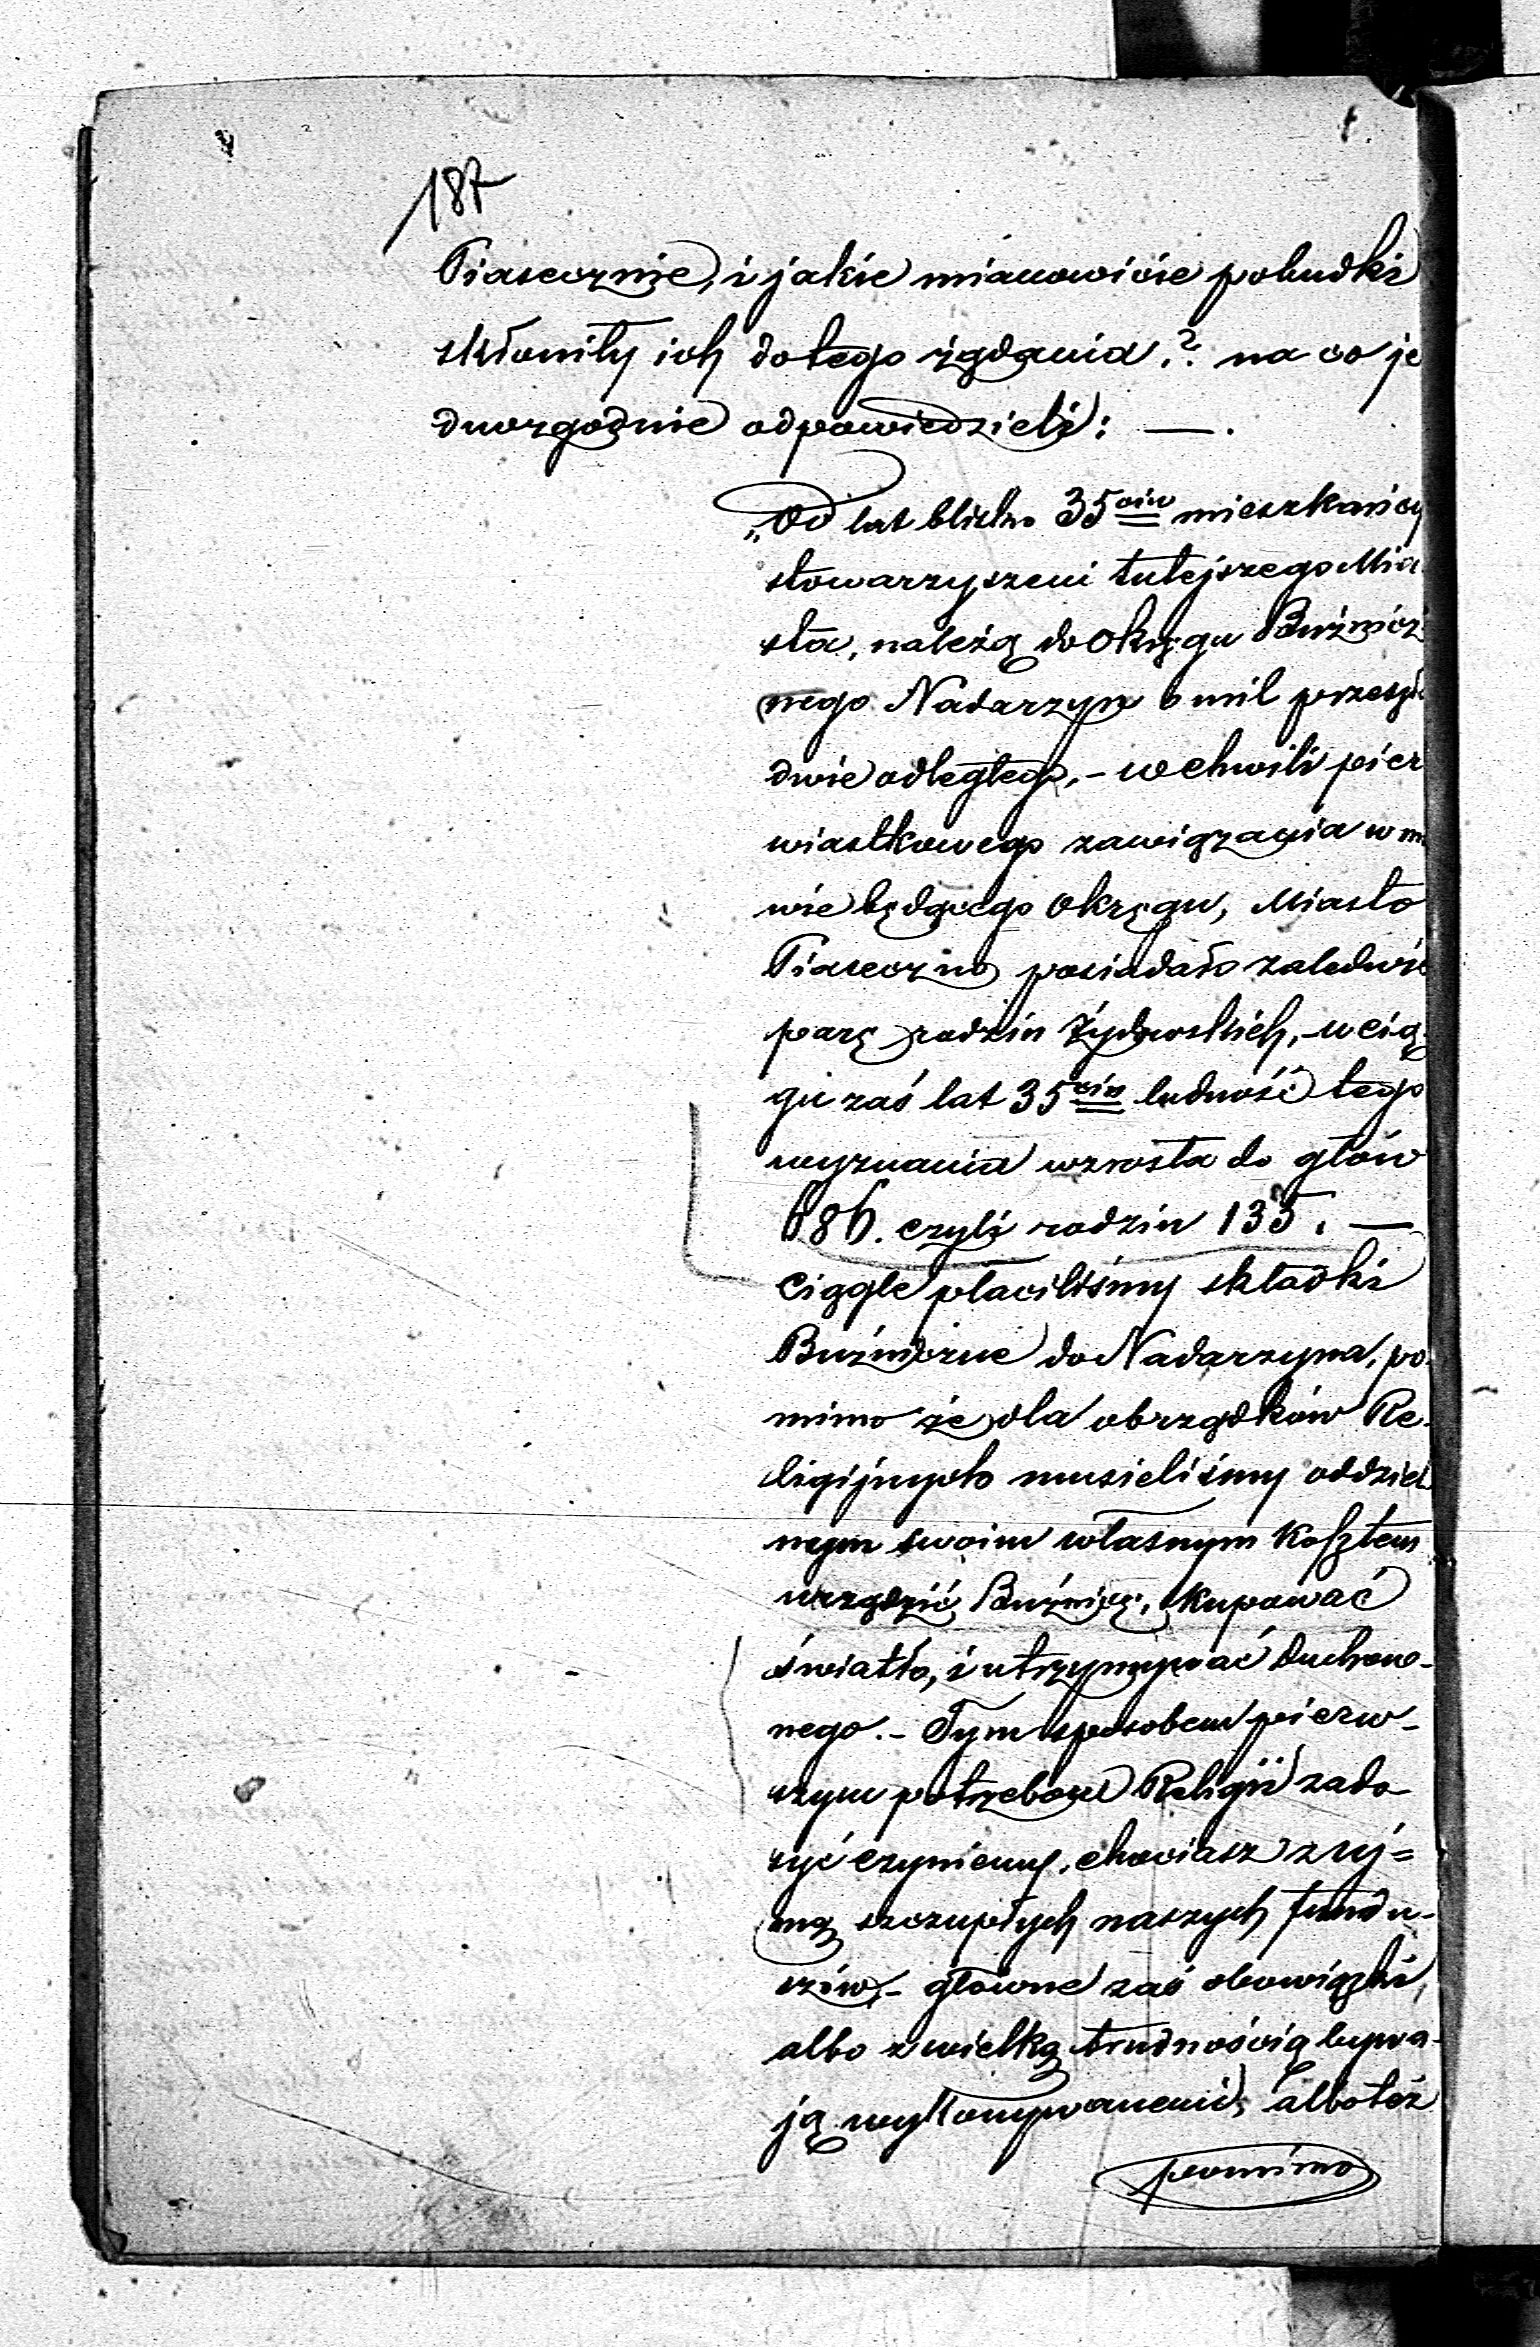 187
Piasecznie, i jakie mianowicie pobudki
skłoniły ich do tego żądania.? na co je
dnozgodnie odpowiedzieli: —.
„Od lat blisko 35ciu mieszkańcy
stowarzyszeni tutejszego Mia
sta, należą do Okręgu Bużnicz
nego Nadarzyn o mil przeszło
dwie odległego, – w chwili pier
wiastkowego zawiązania w mo
wie będącego Okręgu, Miasto
Piaseczno posiadało zaledwie
parę rodzin Żydowskich, – w cią
gu zaś lat 35ciu ludność tego
wyznania wzrosła do głów
686. czyli rodzin 135. —
Ciągle płaciliśmy składki
Bużniczne do Nadarzyna, po
mimo że dla obrządków Re-
ligijnych musieliśmy oddziel
nym swoim własnym kosztem
urządzić Bużnicę, kupować
światło, i utrzymywać Duchow-
nego. – Tym sposobem pierw-
szym potrzebom Religii zado-
syć czyniemy, chociasz z uj=
mą szczupłych naszych fundu-
szów, – główne zaś obowiązki,
albo z wielką trudnością bywa-
ją wykonywanemi, albo też
pomimo